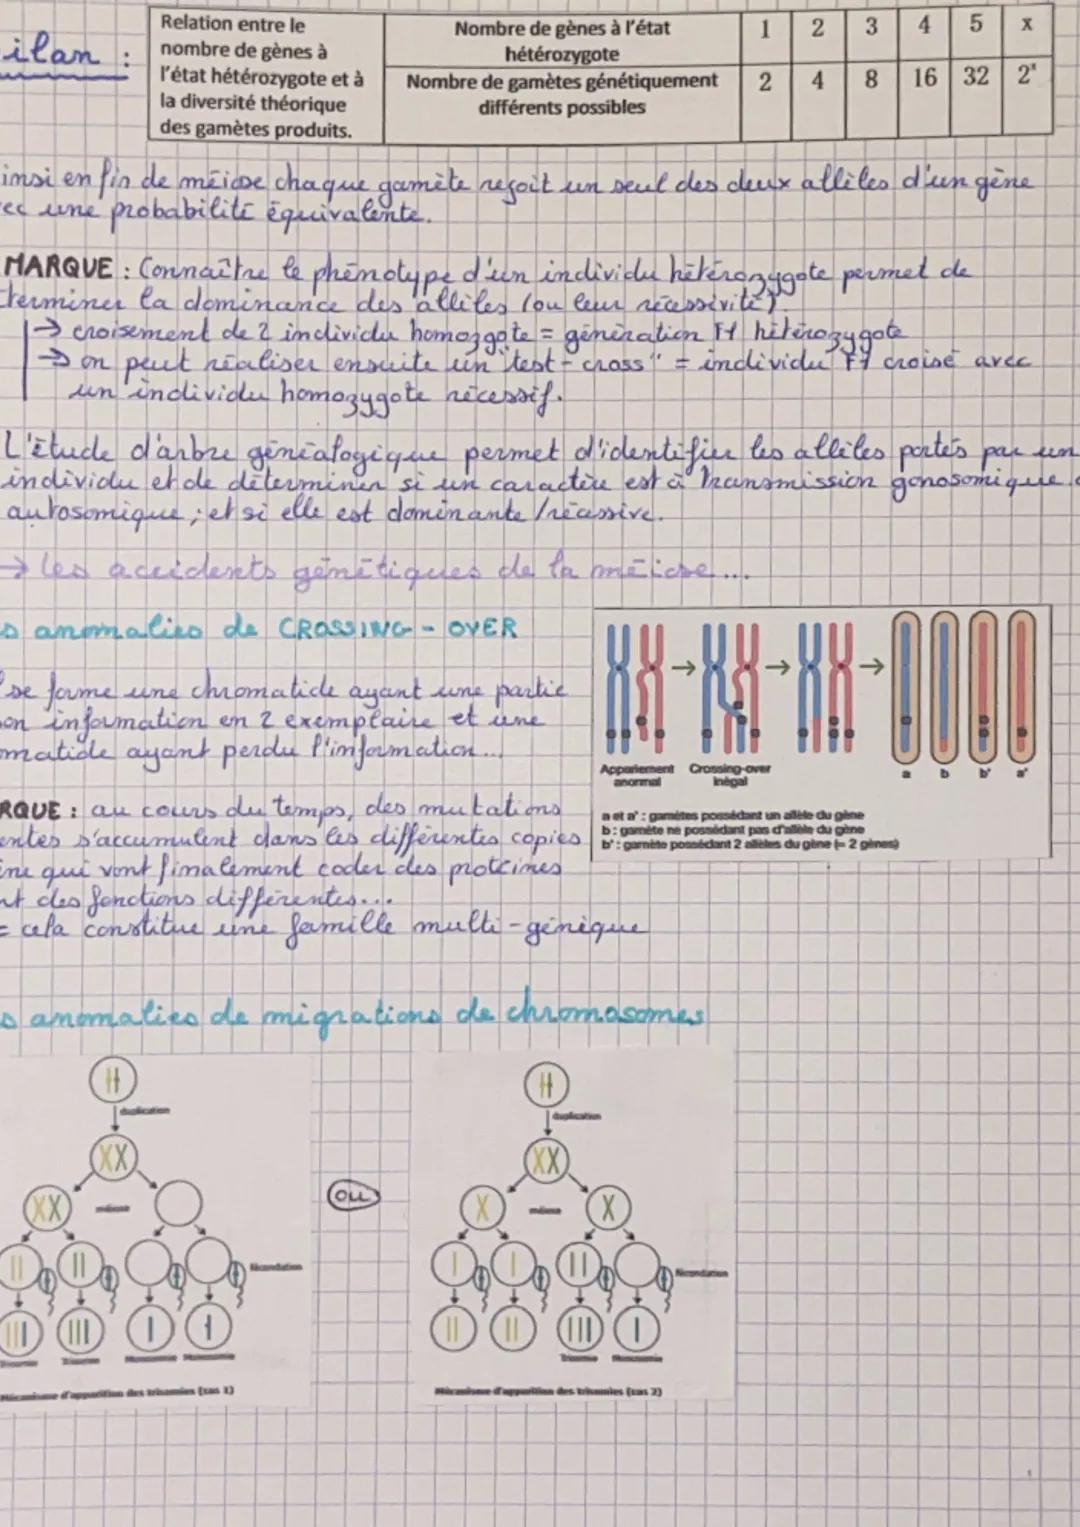 ilan :
Relation entre le
nombre de gènes à
l'état hétérozygote et à
la diversité théorique
des gamètes produits.
Nombre de gènes à l'état
hétérozygote
1 2 3 4 5 x
Nombre de gamètes génétiquement
différents possibles
2 4 8 16 32 2ˣ
insi en fin de méiose chaque gamète reçoit un seul des deux allèles d'un gène
ec une probabilité équivalente.
MARQUE : Connaître le phénotype d'un individu hétérozygote permet de
terminer la dominance des allèles (ou leur récessivité)
→ croisement de 2 individu homozygote = génération F1 hétérozygote
→ on peut réaliser ensuite un "test-cross" = individu F1 croisé avec
un individu homozygote récessif.
L'étude d'arbre généalogique permet d'identifier les allèles portés par un
individu et de déterminer si un caractère est à transmission gonosomique
autosomique ; et si elle est dominante/récessive.
→ les accidents génétiques de la méiose...
s anomalies de CROSSING-OVER
se forme une chromatide ayant une partie
on information en 2 exemplaire et une
matide ayant perdu l'information...
Appariement
anormal
Crossing-over
inégal
a b b' a'
a et a' : gamètes possédant un allèle du gène
b : gamète ne possédant pas d'allèle du gène
b' : gamète possédant 2 allèles du gène (= 2 gènes)
RQUE : au cours du temps, des mutations
entes s'accumulent dans les différentes copies
ène qui vont finalement coder des protéines
nt des fonctions différentes...
= cela constitue une famille multi-génique
s anomalies de migrations de chromosomes
duplication
méiose
fécondation
Trisomie Trisomie Monosomie Monosomie
Mécanisme d'apparition des trisomies (cas 1)
OU
duplication
méiose
fécondation
Trisomie Monosomie
Mécanisme d'apparition des trisomies (cas 2)